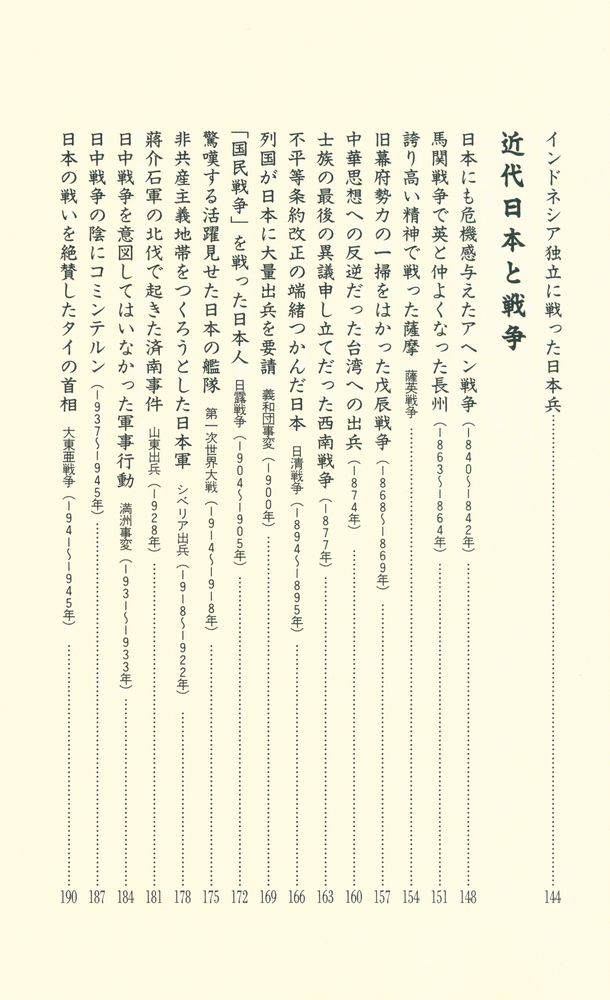 インドネシア独立に戦った日本兵……144
近代日本と戦争
日本にも危機感与えたアヘン戦争（一840〜一842年）……148
馬関戦争で英と仲よくなった長州（一863〜一864年）……151
誇り高い精神で戦った薩摩 薩英戦争……154
旧幕府勢力の一掃をはかった戊辰戦争（一868〜一869年）……157
中華思想への反逆だった台湾への出兵（一874年）……160
士族の最後の異議申し立てだった西南戦争（一877年）……163
不平等条約改正の端緒つかんだ日本 日清戦争（一894〜一895年）……166
列国が日本に大量出兵を要請 義和団事変（一900年）……169
「国民戦争」を戦った日本人 日露戦争（一904〜一905年）……172
驚嘆する活躍見せた日本の艦隊 第一次世界大戦（一9一4〜一9一8年）……175
非共産主義地帯をつくろうとした日本軍 シベリア出兵（一9一8〜一922年）……178
蔣介石軍の北伐で起きた済南事件 山東出兵（一928年）……181
日中戦争を意図してはいなかった軍事行動 満洲事変（一93一〜一933年）……184
日中戦争の陰にコミンテルン（一937〜一945年）……187
日本の戦いを絶賛したタイの首相 大東亜戦争（一94一〜一945年）……190